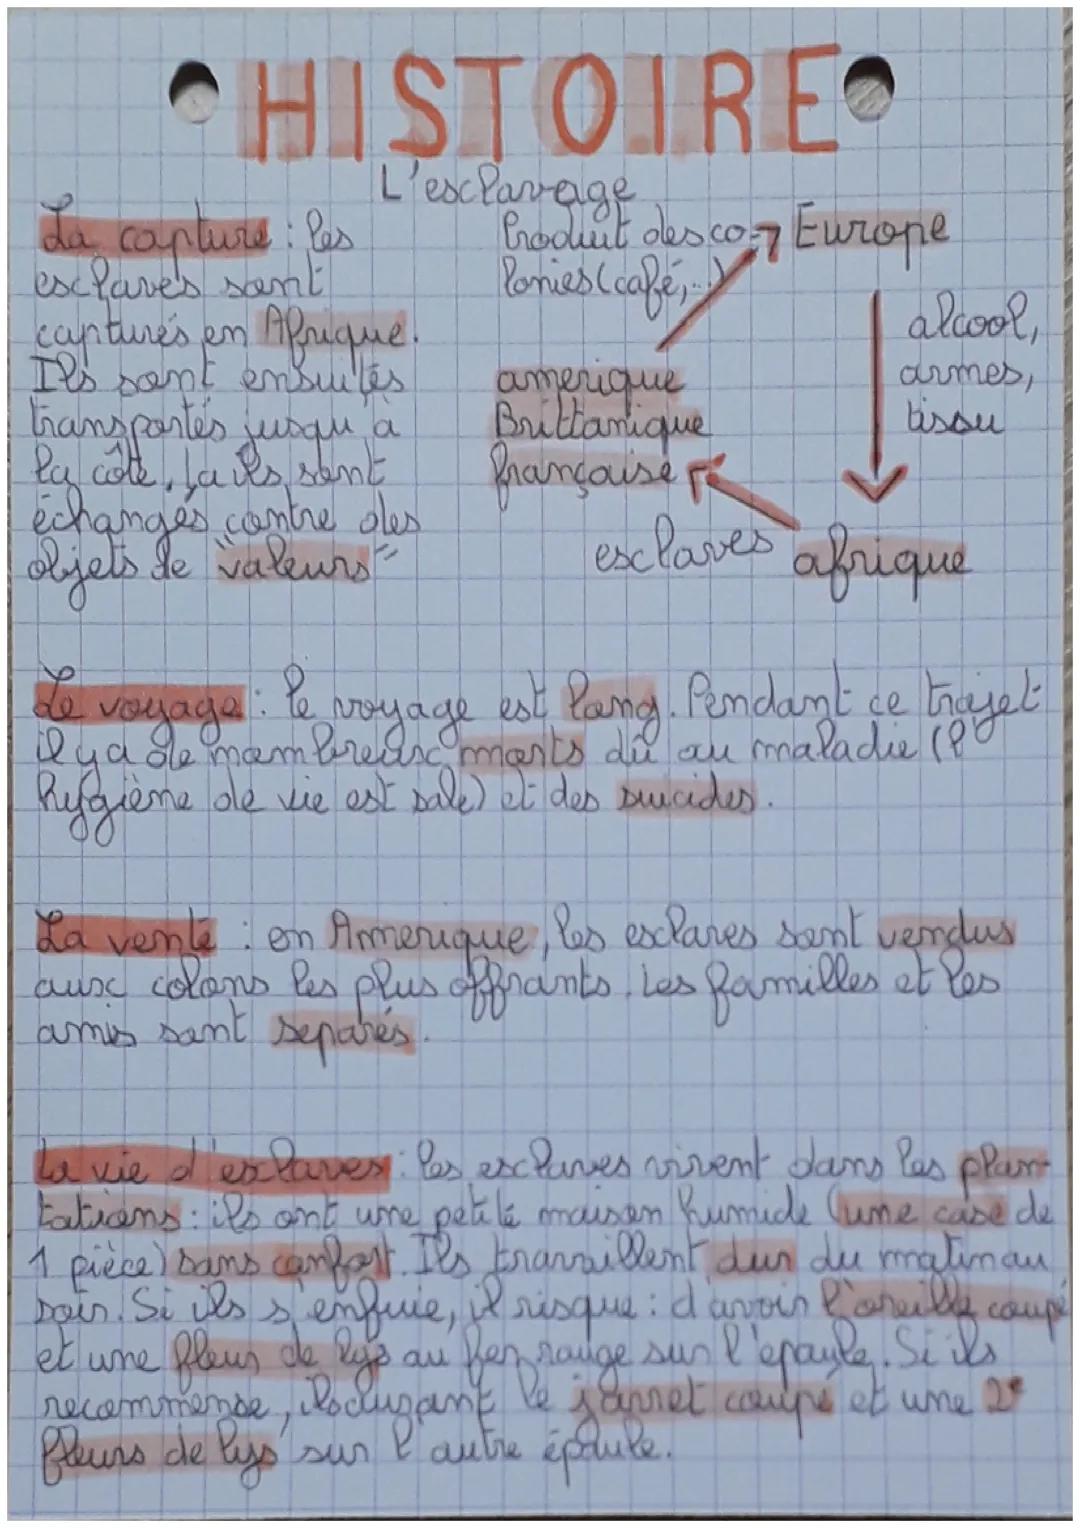 HISTOIRE
L'esclavage
La capture : les
esclaves sont
capturés en Afrique.
Ils sont ensuites
transportés jusqu'à
la côte, la ils sont
échangés contre des
objets de "valeurs"
Produit des co-
lonies (café,...)
Europe
alcool,
armes,
tissu
amerique
Brittanique
française
esclaves
afrique
Le voyage : le voyage est long. Pendant ce trajet
il y a de nombreux morts dû au maladie (l'
hygième de vie est sale) et des suicides.
La vente : en Amerique, les esclaves sont vendus
aux colons les plus offrants. Les familles et les
amis sont separés.
La vie d'esclaves : les esclaves vivent dans les plan-
tations : ils ont une petite maison humide (une case de
1 pièce) sans confort. Ils travaillent dur du matin au
soir. Si ils s'enfuie, il risque : d'avoir l'oreille coupé
et une fleur de lys au fer rouge sur l'épaule. Si ils
recommense, ils auront le jarret coupé et une 2e
fleurs de lys sur l'autre épaule.